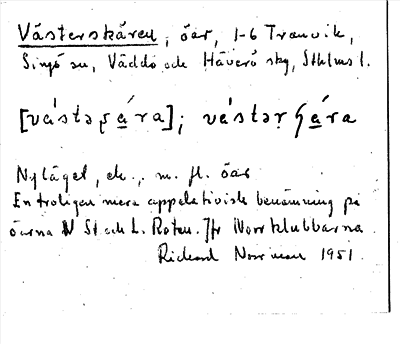 Västerskären, öar, 1-6 Tranvik,
Singö sn, Väddö och Häverö sky, Sthlms l.
[vástəʂä́ra]; västəʂä́ra
Nylägel, etc., m. fl. öar
En troligen mera appellativisk benämning på
öarna N St och L. Roten. Jfr Norrklubbarna.
Rickard Norrman 1951.